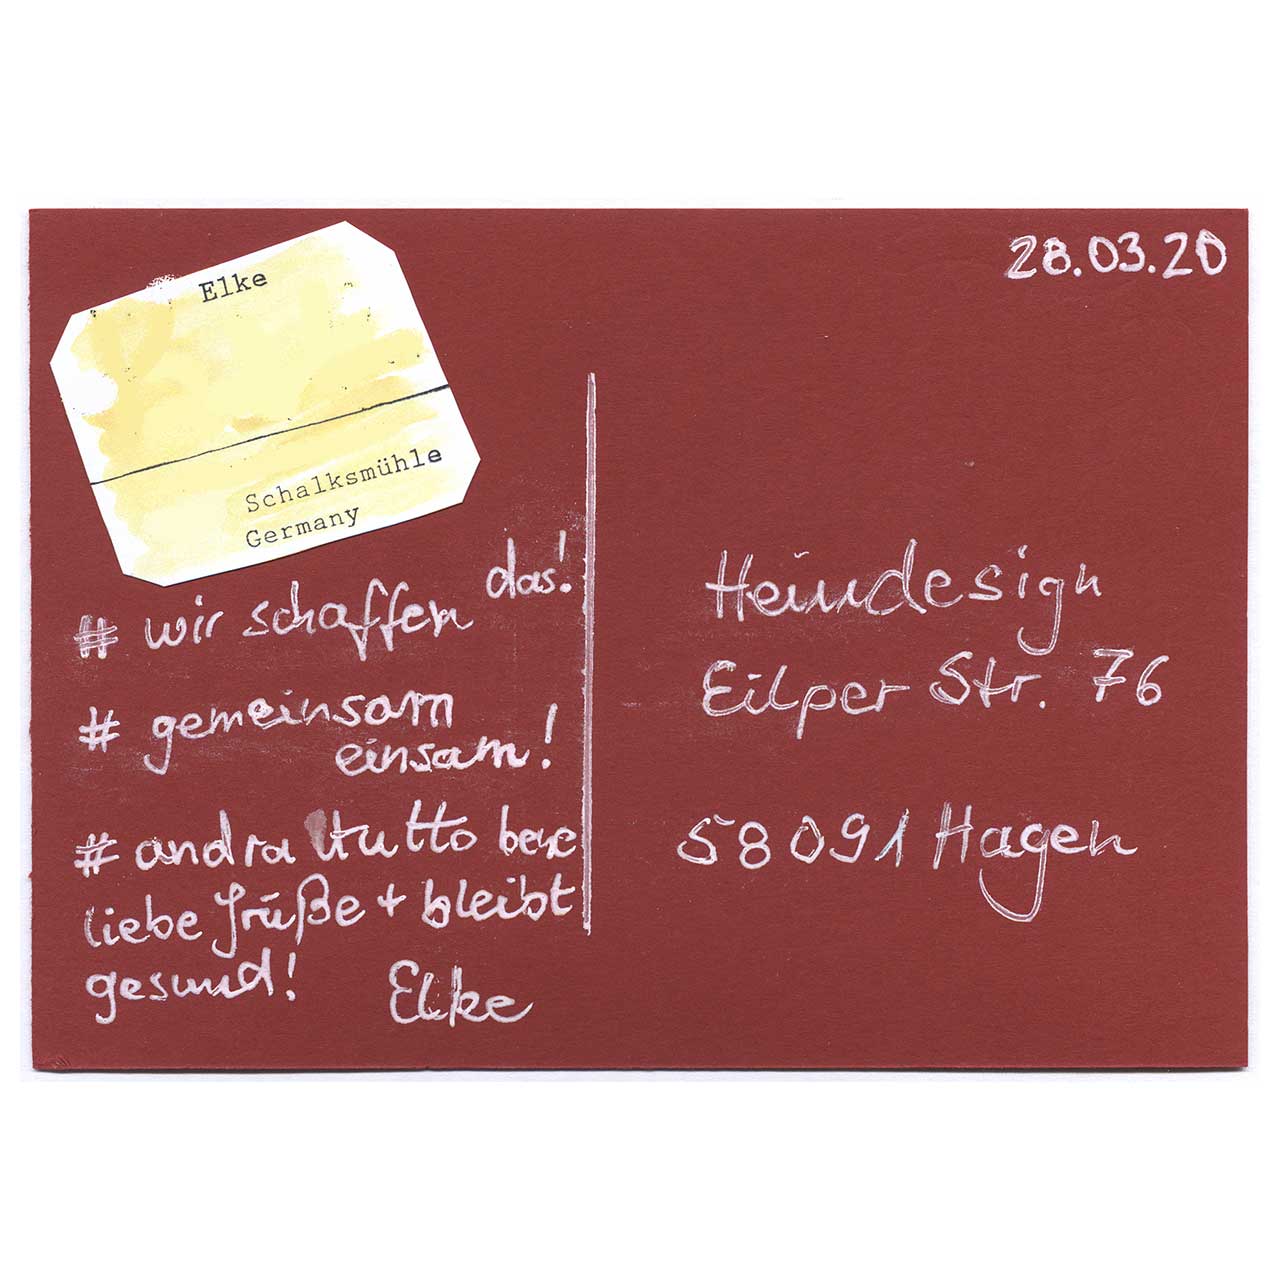 28.03.20
Elke
Schalksmühle
Germany
# wir schaffen das!
# gemeinsam
einsam!
# andra tutto bene
liebe Grüße + bleibt
gesund!
Elke
Heindesign
Eilper Str. 76
58091 Hagen